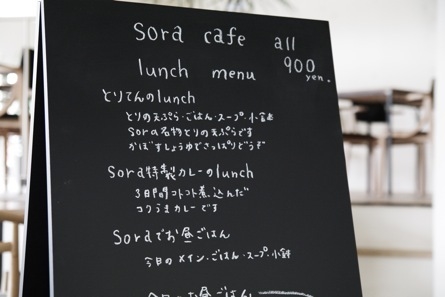 sora cafe all
lunch menu 900
yen.
とりてんのlunch
とりの天ぷら・ごはん・スープ・小鉢
Sora名物とりの天ぷらです
かぼすしょうゆでさっぱりどうぞ
Sora特製カレーのlunch
3日間コトコト煮込んだ
コクうまカレーです
Soraでお昼ごはん
今日のメイン・ごはん・スープ・小鉢
お昼ごはん